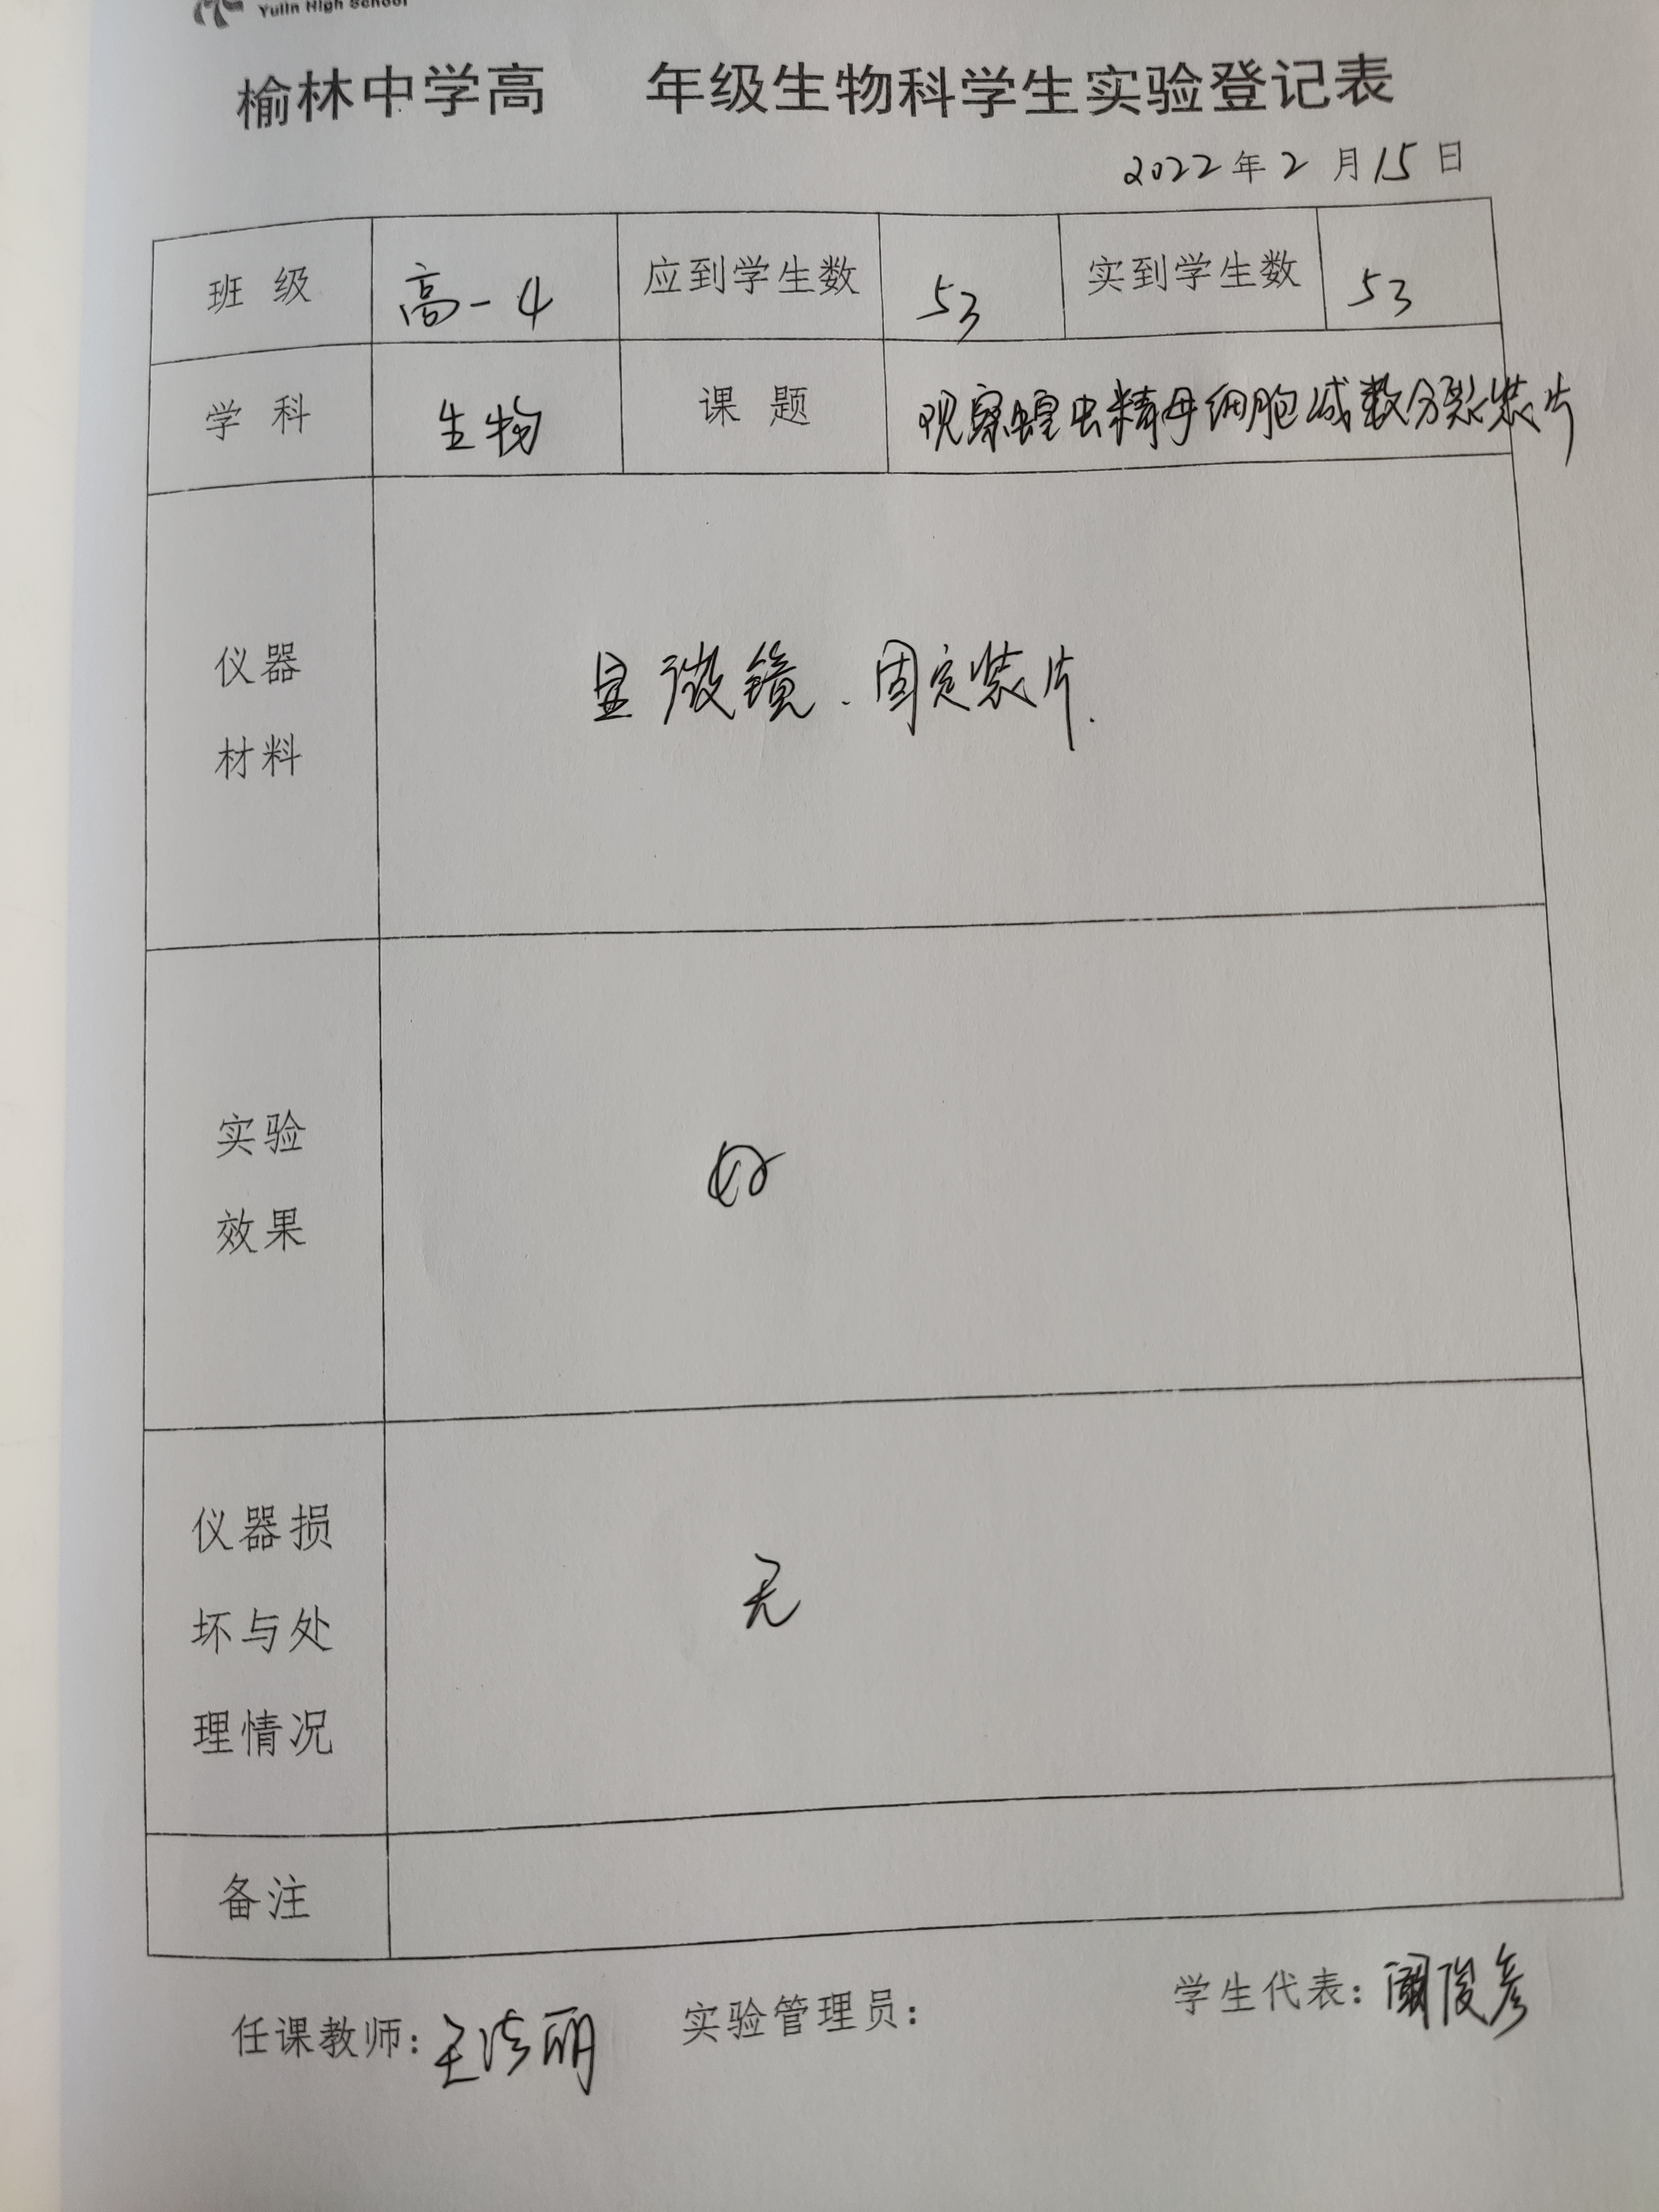 Yulin High School
榆林中学高 年级生物科学生实验登记表
2022年2月15日
班级 高一4 应到学生数 53 实到学生数 53
学科 生物 课题 观察蝗虫精母细胞减数分裂装片
仪器
材料
显微镜、固定装片.
实验
效果
好
仪器损
坏与处
理情况
无
备注
任课教师: 王 丽 实验管理员: 学生代表: 俊彦